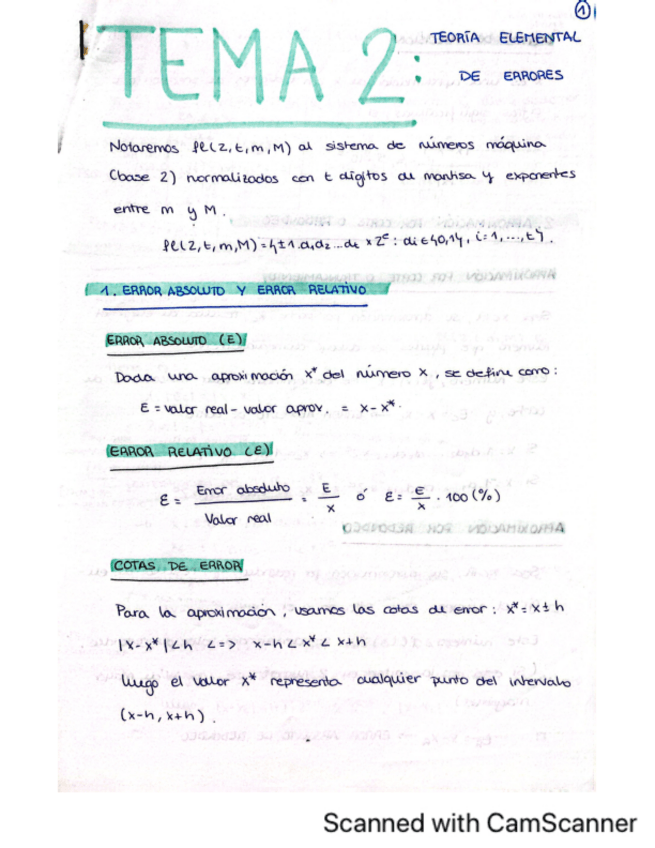 1
TEMA 2: TEORÍA ELEMENTAL
DE ERRORES
Notaremos fl(2,t,m,M) al sistema de números máquina
(base 2) normalizados con t dígitos de mantisa y exponentes
entre m y M.
fl(2,t,m,M)={±1.d₁d₂...dt x 2ᵉ : di ∈ {0,1}, i=1,...,t}.
1. ERROR ABSOLUTO Y ERROR RELATIVO
ERROR ABSOLUTO (E)
Dada una aproximación x* del número x, se define como:
E = valor real - valor aprox. = x - x*.
ERROR RELATIVO (ε)
ε = Error absoluto / Valor real = E / x ó ε = E / x · 100 (%)
COTAS DE ERROR
Para la aproximación, usamos las cotas de error: x* = x ± h
|x-x*| < h <=> x-h < x* < x+h
luego el valor x* representa cualquier punto del intervalo
(x-h, x+h).
Scanned with CamScanner